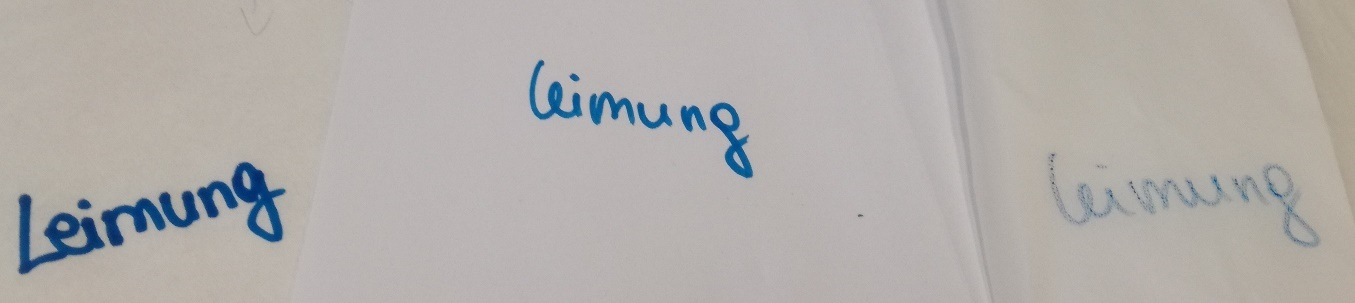 Leimung
Leimung
Leimung